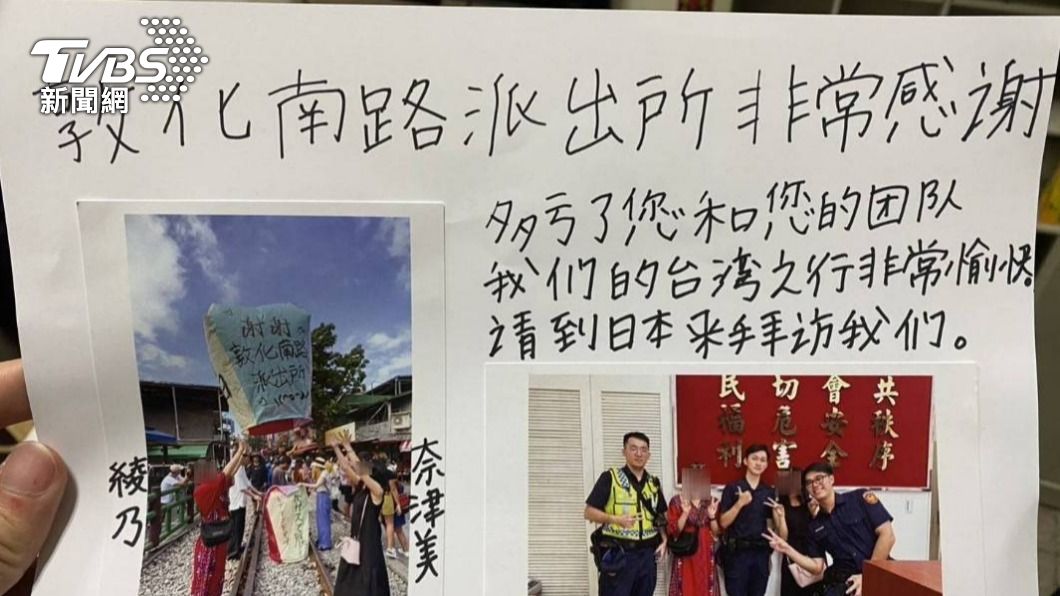 TVBS
新聞網
敦化南路派出所非常感谢
多亏了您和您的团队
我们的台湾之行非常愉快。
请到日本来拜访我们。
谢谢
敦化南路
派出所
綾乃
奈津美
共秩序
會安全
切危害
民福利